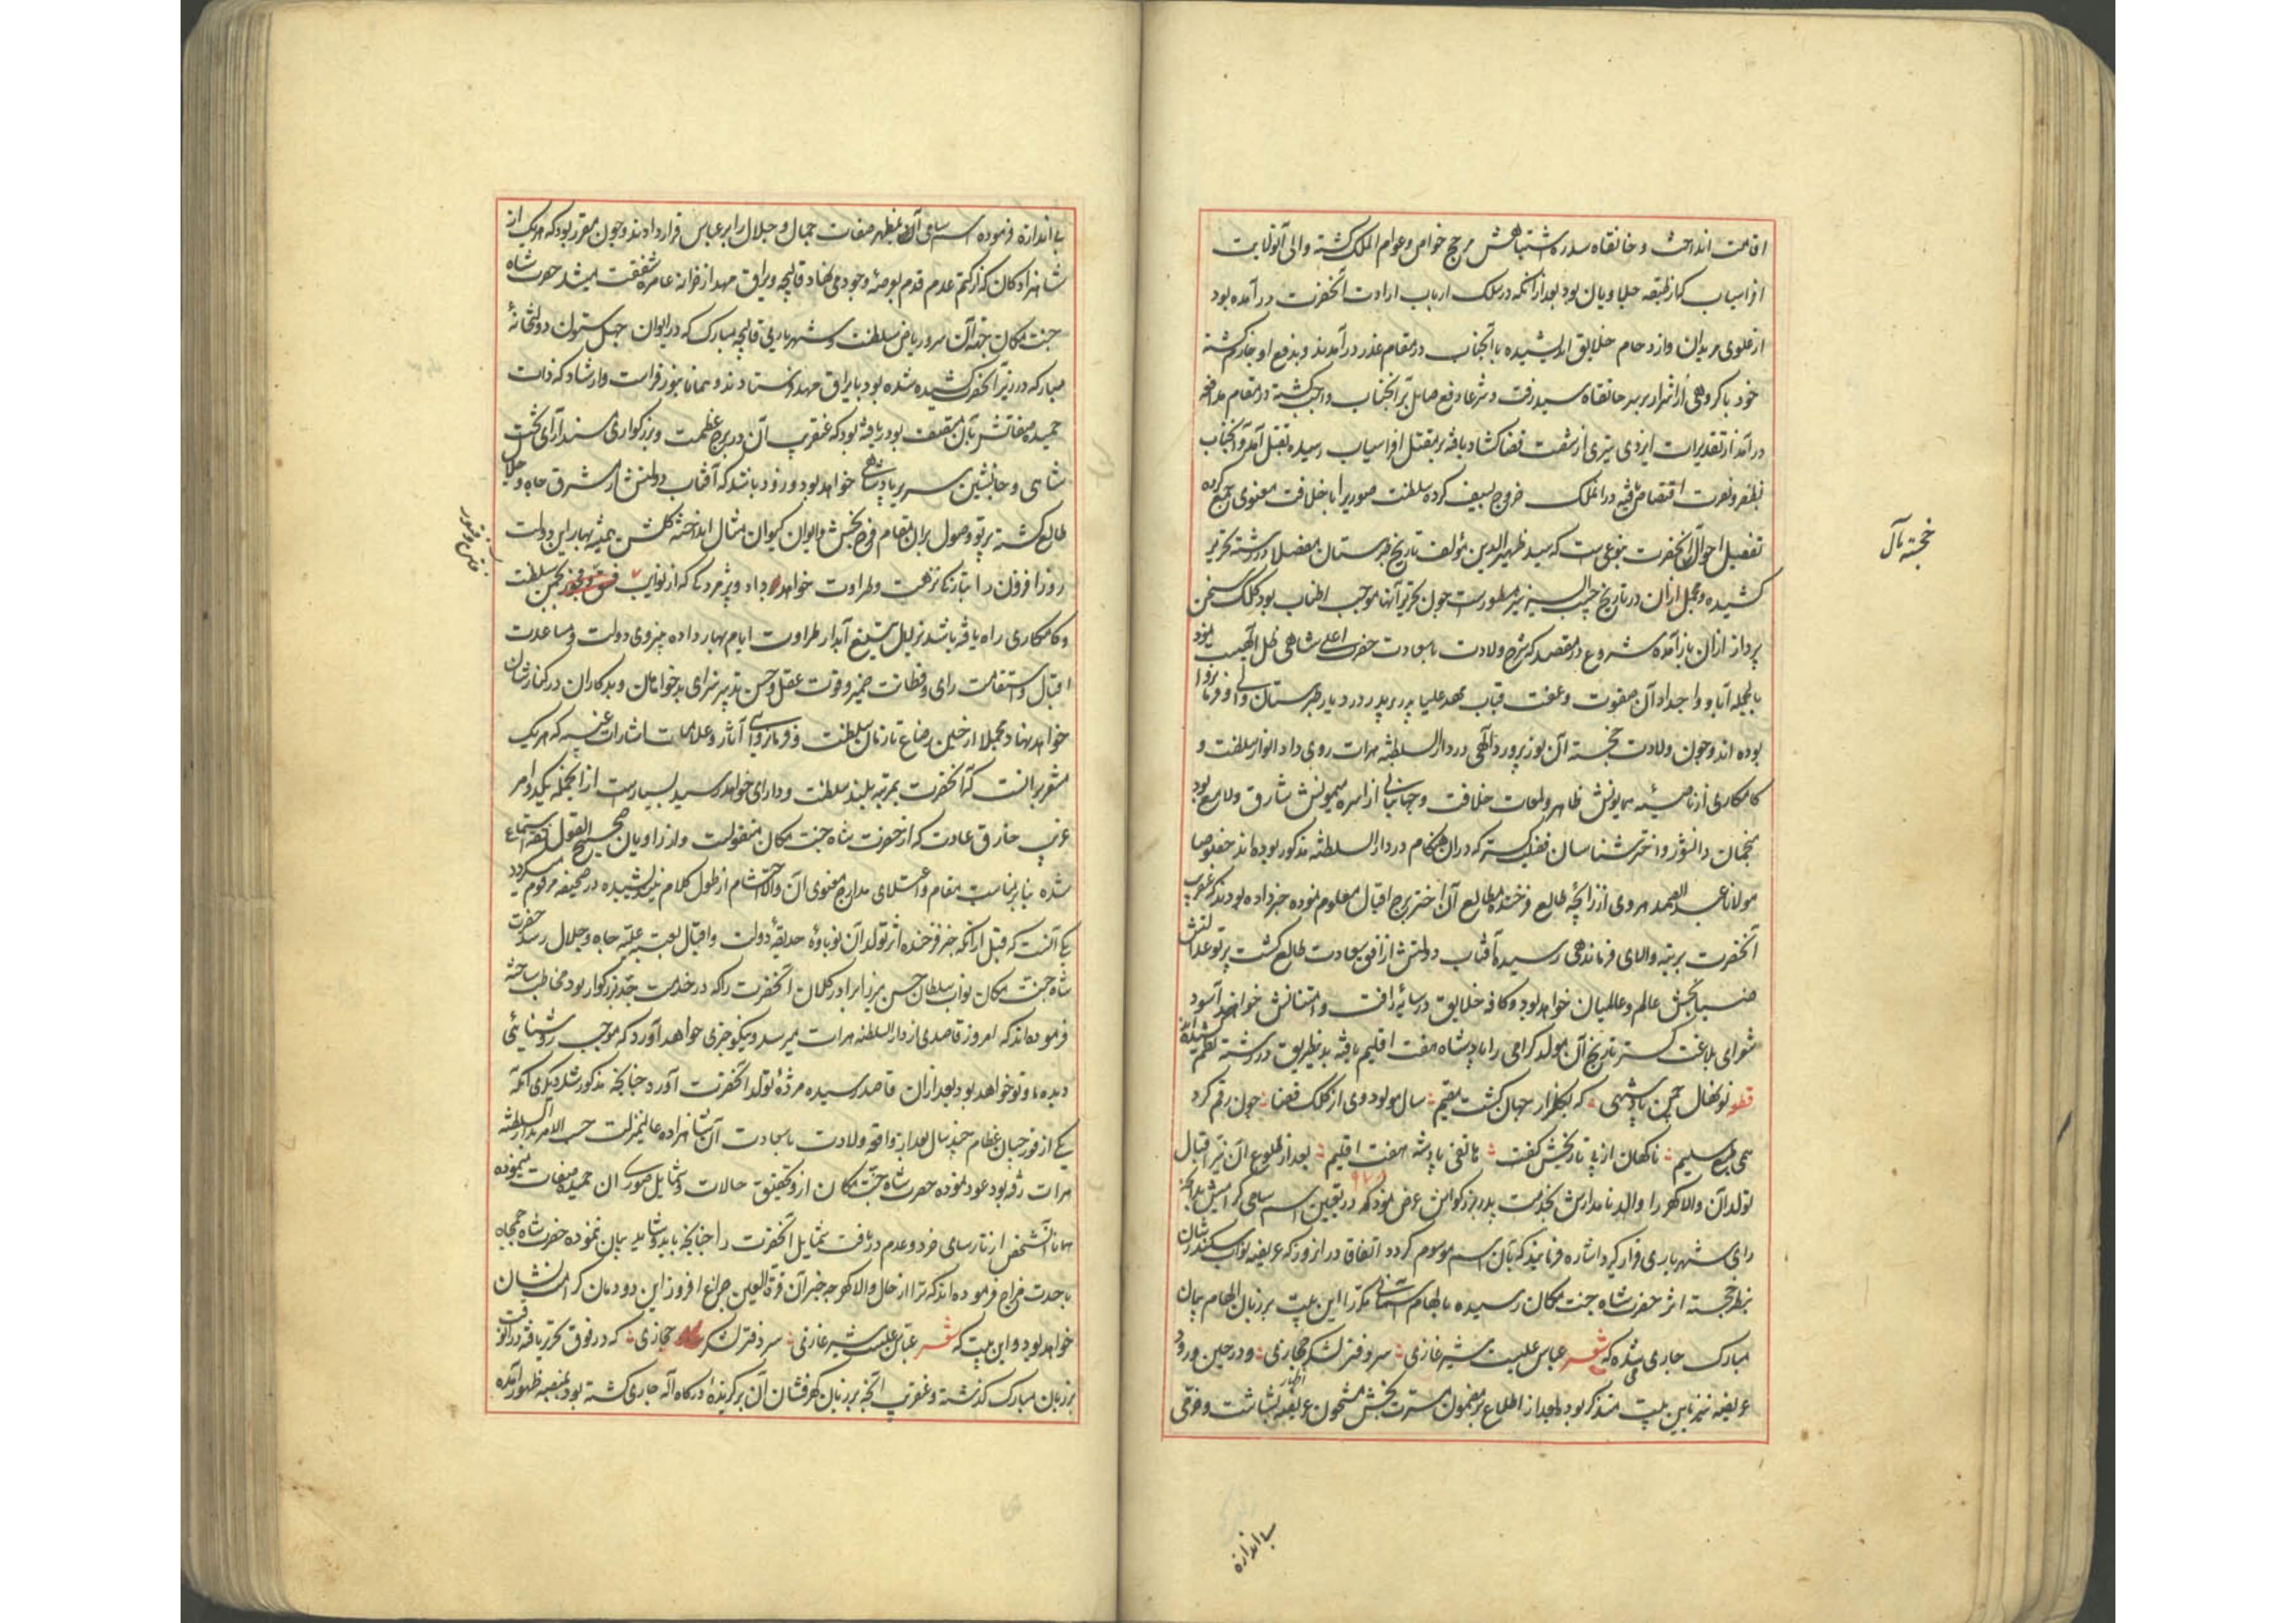 اقامت انداخت و خانقاه سدره اشتباهش مرجع خواص و عوام الملک گشته والی آنولایت
افراسیاب که از طبقه جلاویان بود بعد از آنکه در سلک ارباب ارادت آنحضرت در آمده بود
از غلوی مریدان و ازدحام خلایق اندیشیده با آنجناب در مقام غدر در آمدند و بدفع او جازم گشته
خود با گروهی از اشرار بر سر خانقاه سید رفت و شرعا دفع صایل بر آنجناب واجب گشته در مقام مدافعه
در آمد از تقدیرات ایزدی تیری از شست قضا گشاد یافته بر مقتل افراسیاب رسیده بقتل آمد و آنجناب
بظفر و نصرت اختصاص یافته در آن ملک خروج بسیف کرده سلطنت صوری را با خلافت معنوی جمع کرده
تفصیل احوال آنحضرت بنوعیست که سید ظهیر الدین مؤلف تاریخ طبرستان مفصلا در رشته تحریر
کشیده و مجمل از آن در تاریخ حبیب السیر نیز مسطورست چون تحریر آنها موجب اطناب بود کلک سخن
پرداز از آن باز آمده شروع در مقصد که شرح ولادت با سعادت حضرت اعلی شاهی ظل الهیست نمود
بالجمله آبا و اجداد آن صفوت و عفت قباب مهد علیا پدر بر پدر در دیار طبرستان والی و فرمانروا
بوده اند و چون ولادت خجسته آن نور پرورد الهی در دار السلطنه هرات روی داد انوار سلطنت و
کامکاری از ناصیه همایونش ظاهر و لمعات خلافت و جهانبانی از اسره میمونش شارق و لامع بود
منجمان دانشور و اختر شناسان فضیلت گستر که در آن هنگام در دار السلطنه مذکور بوده اند خصوصا
مولانا عبد الصمد هروی از زایچه طالع فرخنده مطالع آن اختر برج اقبال معلوم نموده خبر داده بودند که عنقریب
آنحضرت برتبه والای فرماندهی رسیده آفتاب دولتش از افق سعادت طالع گشت پرتو عدالتش
ضیا بخش عالم و عالمیان خواهد بود و کافه خلایق در سایه رأفت و امتنانش خواهند آسود
شعرای بلاغت گستر تاریخ آن مولد گرامی را پادشاه هفت اقلیم یافته بدینطریق در رشته نظم کشیده اند
قطعه نونهال چمن پادشهی که بگلزار جهان گشت مقیم سال مولود وی از کلک قضا چون رقم کرد
همی طبع سلیم ناگهان از پی تاریخش گفت هاتفی پادشه هفت اقلیم بعد از طلوع آن نیر اقبال
۹۷۸
تولد آن والا گهر را والد نامدارش بخدمت پدر بزرگوارش عرض نمود که در تعیین اسم سامی گرامیش بد آنچه
رای شهریاری قرار گیرد اشاره فرمایند که بآن اسم موسوم گردد اتفاقا در آنروز که عریضه نواب سکندر شان
بنظر خجسته اثر حضرت شاه جنت مکان رسیده بالهام آسمانی مکررا این بیت بر زبان الهام بیان
مبارک جاری می شده که شعر عباس علیست شیر غازی سر دفتر لشکر حجازی و در حین ورود
عریضه نیز باین بیت متذکر بود و بعد از اطلاع بر مضمون مسرت بخش مشحون عریضه اظهار بشاشت و خرمی
خجسته مآل
بی اندازه
بی اندازه فرموده اسم سامی آن مظهر صفات جمال و جلال را بر عباس قرار دادند و چون مقرر بود که هر یک از
شاهزادگان که از کتم عدم قدم بعرصه وجود می نهاد قالیچه و یراق مهد از خزانه عامره شفقت میشد حضرت شاه
جنت مکان جهة آن سرو ریاض سلطنت و شهریاری قالیچه مبارک که در ایوان چهل ستون دولتخانه
مبارکه در زیر آنحضرت کشیده شده بود با یراق مهد فرستادند و همانا بنور فراست و ارشاد که ذات
حمیده صفاتش بآن متصف بود دریافته بود که عنقریب آن در برج عظمت و بزرگواری مسند آرای تخت
شاهی و جانشین سریر پادشاهی خواهد بود و زود باشد که آفتاب دولتش از مشرق جاه و جلال
طالع گشته پرتو وصول بر آن مقام فرح بخش و ایوان کیوان مثال انداخته گلشن همیشه بهار این دولت
روز افزون را بتازگی نزهت و طراوت خواهد داد و پژمردگی که از نوایب بچمن سلطنت
و کامکاری راه یافته باشد بزلال تیغ آبدار طراوت ایام بهار داده بنیروی دولت و مساعدت
اقبال و استقامت رای و فطانت ضمیر و قوت عقل و حسن تدبیر سزای بدخواهان و بدکاران در کنارشان
خواهد نهاد و مجملا از حین رضاع تا زمان سلطنت و فرمانروایی آثار و علامات اشارات غیبیه که هر یک
مشعر بر آنست که آنحضرت بمرتبه بلند سلطنت و دارای خواهد رسید بسیارست از آنجمله یکدو امر
غریب خارق عادت که از حضرت شاه جنت مکان منقولست و از راویان صحیح القول استماع
شده بنابر مناسبت مقام و اعتلای مدارج معنوی آن والا احتشام از طول کلام نیندیشیده در صحیفه مرقوم میگردد
یکی آنست که قبل از آنکه خبر فرخنده اثر تولد آن نوباوه حدیقه دولت و اقبال بعتبه علیه جاه و جلال رسد حضرت
شاه جنت مکان نواب سلطان حسن میرزا برادر کلان آنحضرت را که در خدمت جد بزرگوار بود مخاطب ساخته
فرموده اند که امروز قاصدی از دار السلطنه هرات میرسد و نیکو خبری خواهد آورد که موجب روشنائی
دیده ما و تو خواهد بود بعد از آن قاصد رسیده مژده تولد آنحضرت آورد چنانچه مذکور شد دیگری آنکه
یکی از قورچیان عظام چند سال بعد از واقعه ولادت با سعادت آن شاهزاده عالیمنزلت حسب الامر بدار السلطنه
هرات رفته بود عود نموده حضرت شاه جنت مکان از و تحقیق حالات و شمایل صوری آن حمیده صفات مینموده
همانا آنشخص از نارسای خرد و عدم دریافت شمایل آنحضرت را چنانچه باید و شاید بیان ننموده حضرت شاه جمجاه
با حدت مزاج فرموده اند که ترا از حال والا گهر چه خبر آن قرة العین چراغ افروز این دودمان کرامت نشان
خواهد بود و این بیت که شعر عباس علیست شیر غازی سر دفتر لشکر حجازی که در فوق تحریر یافته در آنوقت
بر زبان مبارک گذشته و عنقریب آنچه بر زبان گهر فشان آن برگزیده درگاه اله جاری گشته بود بمنصه ظهور آمده